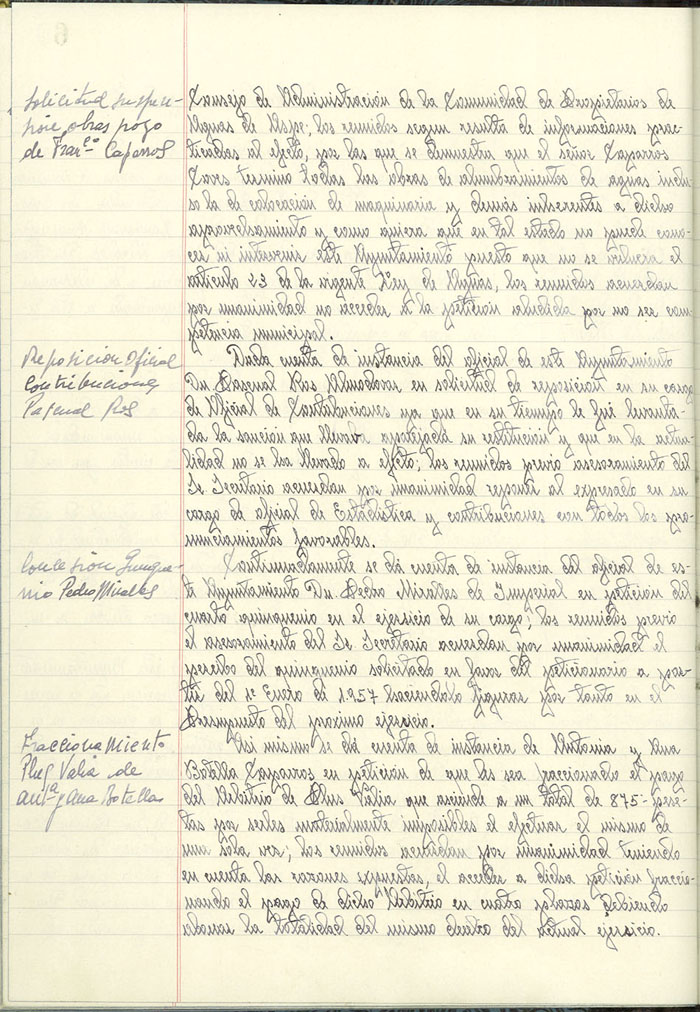 Solicitud suspen-
sión obras pozo
de Franco Caparros
Consejo de Administración de la Comunidad de Propietarios de
Aguas de Aspe; los reunidos segun resulta de informaciones prac-
ticadas al efecto, por las que se demuestra que el señor Caparros
Cores termino todas las obras de alumbramientos de aguas inclu-
so la de colocación de maquinaria y demás inherentes a dicho
aprovechamiento y como quiera que en tal estado no puede cono-
cer ni intervenir este Ayuntamiento puesto que no se vulnera el
articulo 23 de la vigente Ley de Aguas, los reunidos acuerdan
por unanimidad no acceder a la petición aludida por no ser com-
petencia municipal.
Reposicion Oficial
Contribuciones
Pascual Ros
Dada cuenta de instancia del oficial de este Ayuntamiento
Dn. Pascual Ros Almodovar en solicitud de reposición en su cargo
de Oficial de Contribuciones ya que en su tiempo le fué levanta-
da la sanción que llevaba aparejada su restitución y que en la actua-
lidad no se ha llevado a efecto; los reunidos previo asesoramiento del
Sr. Secretario acuerdan por unanimidad reponer al expresado en su
cargo de oficial de Estadística y contribuciones con todos los pro-
nunciamientos favorables.
Concesion Quinque-
nio Pedro Miralles
Continuadamente se dá cuenta de instancia del oficial de es-
te Ayuntamiento Dn. Pedro Miralles de Imperial en petición del
cuarto quinquenio en el ejercicio de su cargo; los reunidos previo
el asesoramiento del Sr. Secretario acuerdan por unanimidad el
percibo del quinquenio solicitado en favor del peticionario a par-
tir del 1º Enero de 1.957 haciendolo figurar por tanto en el
Presupuesto del proximo ejercicio.
Fraccionamiento
Plus Valia de
Antª y Ana Botella
Asi mismo se dá cuenta de instancia de Antonia y Ana
Botella Caparros en petición de que les sea fraccionado el pago
del Arbitrio de Plus Valia que asciende a un total de 875- pese-
tas por serles materialmente imposibles el efectuar el mismo de
una sola vez; los reunidos acuerdan por unanimidad teniendo
en cuenta las razones expuestas, el acceder a dicha petición fraccio-
nando el pago de dicho Arbitrio en cuatro plazos debiendo
abonar la totalidad del mismo dentro del actual ejercicio.